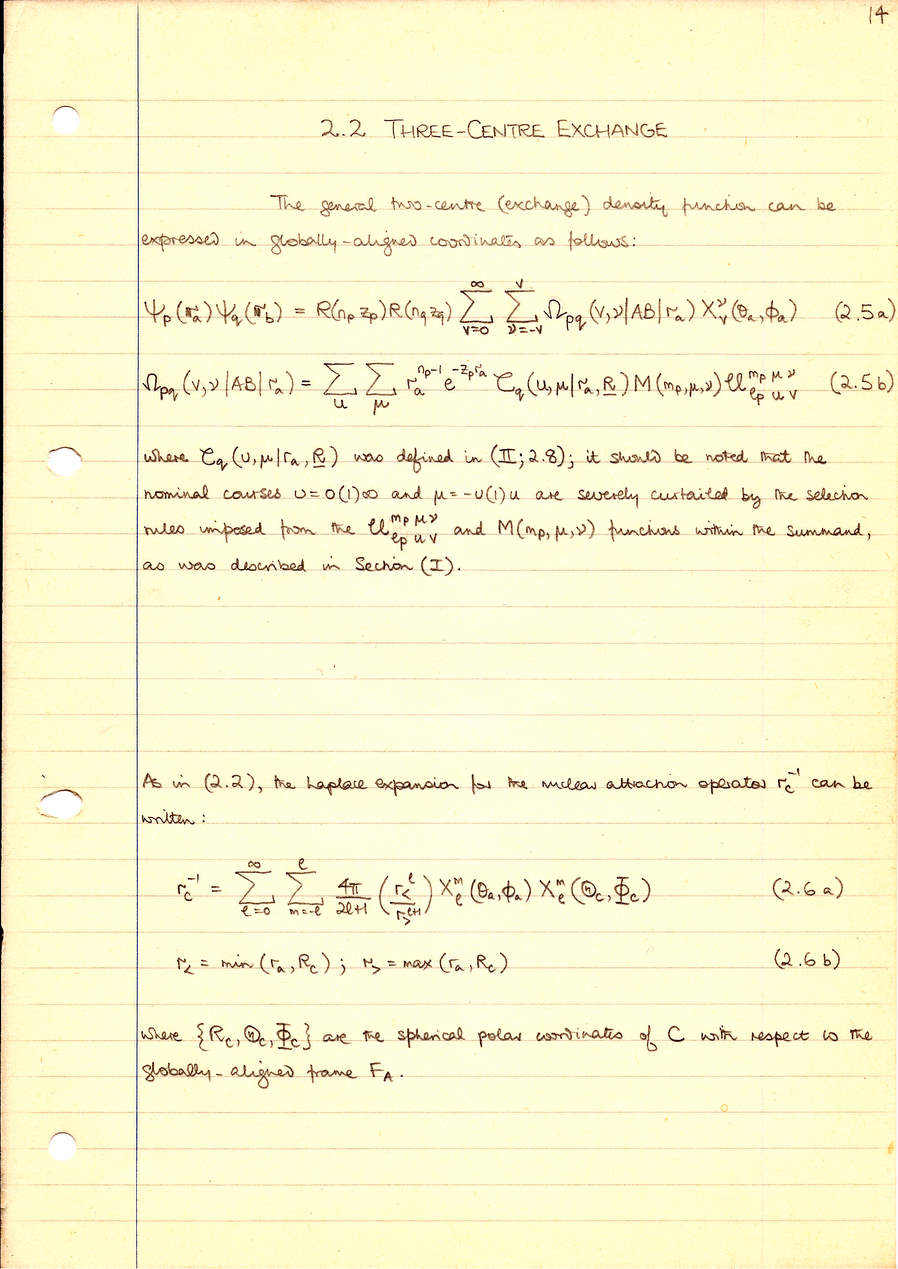 14
2.2 THREE-CENTRE EXCHANGE
The general two-centre (exchange) density function can be
expressed in globally-aligned coordinates as follows:
Ψ_p(𝐫_a)Ψ_q(𝐫_b) = R(n_p z_p)R(n_q z_q) ∑_{v=0}^{∞} ∑_{ν=-v}^{v} Ω_pq(v,ν|AB|r_a) X_v^ν(θ_a,ϕ_a) (2.5a)
Ω_pq(v,ν|AB|r_a) = ∑_u ∑_μ r_a^{n_p-1} e^{-z_p r_a} 𝒞_q(u,μ|r_a,R) M(m_p,μ,ν) 𝒰^{m_p μ ν}_{ℓ_p u v} (2.5b)
where 𝒞_q(u,μ|r_a,R) was defined in (II;2.8); it should be noted that the
nominal courses u=0(1)∞ and μ=-u(1)u are severely curtailed by the selection
rules imposed from the 𝒰^{m_p μ ν}_{ℓ_p u v} and M(m_p,μ,ν) functions within the summand,
as was described in Section (I).
As in (2.2), the Laplace expansion for the nuclear attraction operator r_c^{-1} can be
written:
r_c^{-1} = ∑_{ℓ=0}^{∞} ∑_{m=-ℓ}^{ℓ} 4π/(2ℓ+1) (r_<^ℓ/r_>^{ℓ+1}) X_ℓ^m(θ_a,ϕ_a) X_ℓ^m(Θ_c,Φ_c) (2.6a)
r_< = min(r_a,R_c); r_> = max(r_a,R_c) (2.6b)
where {R_c,Θ_c,Φ_c} are the spherical polar coordinates of C with respect to the
globally-aligned frame F_A.